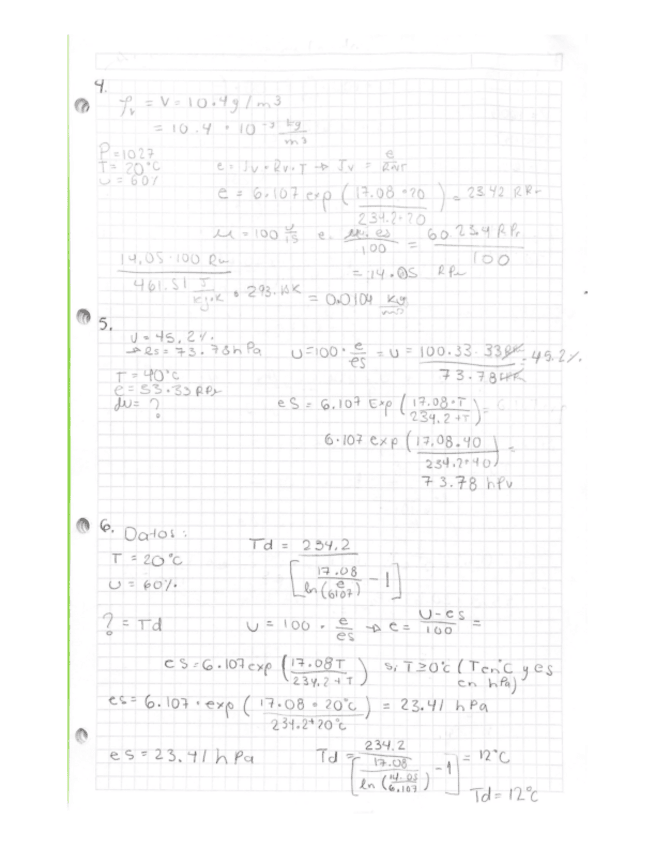 4.
ρv = V = 10.4 g/m3
= 10.4 * 10⁻³ kg/m3
P = 1027
T = 20°C
U = 60%
e = 6.107 exp (17.08 * 20 / 234.2 + 20) = 23.42
e. / 100 = 60 / 100
= 14.05
14.05 · 100 / 461.51 J/kg·K * 293.15K = 0.0104 kg/m3
5.
U = 45,2%.
→ es = 73.78 hPa
U = 100 · e/es = U = 100.33.33 / 73.78 = 45.2%
T = 40°C
e = 33.33
dv = ?
eS = 6.107 Exp (17.08 * T / 234.2 + T) =
6.107 exp (17,08.40 / 234.2+40) =
73.78
6. Datos:
T = 20°C
U = 60%
Td = 234.2 / [17.08 / ln (e/6107) - 1]
? = Td
U = 100 · e/es → e = U-es/100 =
es = 6.107 exp (17.08T / 234.2 + T) si T≥0°C (T en°C y es
en hPa)
es = 6.107 · exp (17.08 * 20°C / 234.2+20°C) = 23.41 hPa
es = 23.41 hPa
Td = 234.2 / [17.08 / ln (14.05/6.107) - 1] = 12°C
Td = 12°C